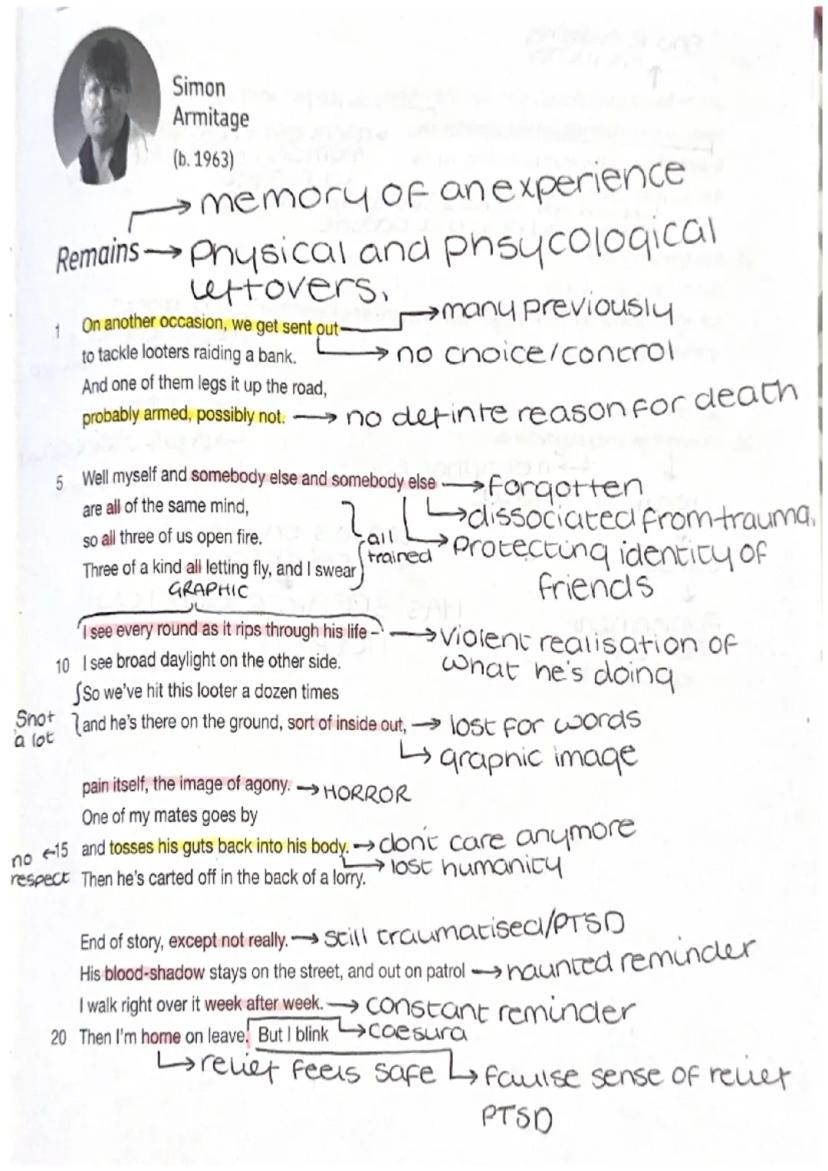 Simon
Armitage
(b. 1963)
memory of an experience
Remains → Physical and phsycological
leftovers.
1 On another occasion, we get sent out → many previously
to tackle looters raiding a bank. → no choice/control
And one of them legs it up the road,
probably armed, possibly not. → no definte reason for death
5 Well myself and somebody else and somebody else → forgotten
are all of the same mind, → dissociated from trauma,
so all three of us open fire. - all trained → Protecting identity of
Three of a kind all letting fly, and I swear friends
GRAPHIC
I see every round as it rips through his life – → violent realisation of
10 I see broad daylight on the other side. what he's doing
So we've hit this looter a dozen times
Shot a lot and he's there on the ground, sort of inside out, → lost for words
→ graphic image
pain itself, the image of agony. → HORROR
One of my mates goes by
15 and tosses his guts back into his body. → don't care anymore
no respect Then he's carted off in the back of a lorry. → lost humanity
End of story, except not really. → still traumatised/PTSD
His blood-shadow stays on the street, and out on patrol → haunted reminder
I walk right over it week after week. → constant reminder
20 Then I'm home on leave. But I blink → caesura
→ relief feels safe → faulse sense of relief
PTSD